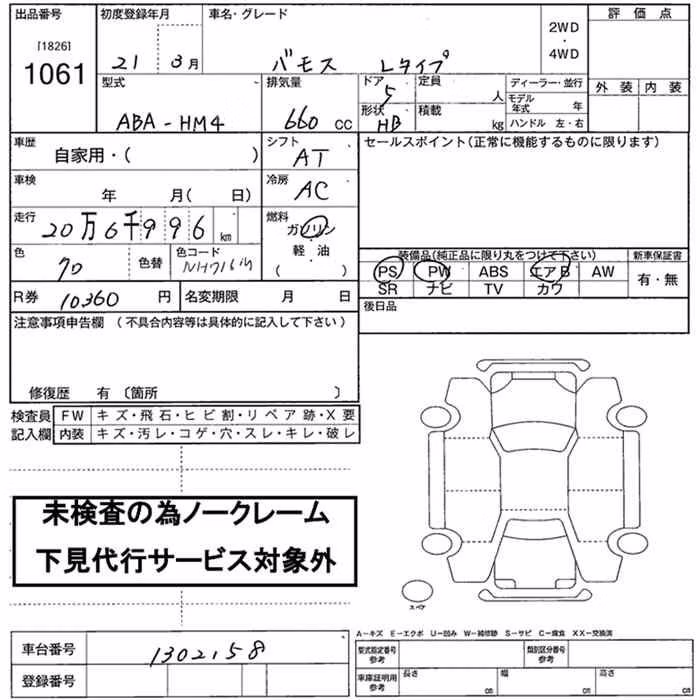 出品番号 初度登録年月 車名・グレード 評価点
[1826]
1061 21 3月 バモス Lタイプ 2WD・4WD
外装 内装
型式 排気量 ドア 5 定員 人 ディーラー・並行
ABA-HM4 660 CC 形状 HB 積載 kg モデル年式 年
ハンドル 左・右
車歴 自家用・( ) シフト AT セールスポイント(正常に機能するものに限ります)
車検 年 月( 日) 冷房 AC
走行 20万6千996 km 燃料 ガソリン・軽油 ( )
色 色替 色コード
装備品(純正品に限り丸をつけて下さい) 新車保証書
PS PW ABS エアB AW 有・無
SR ナビ TV カワ
R券 10360 円 名変期限 月 日 後日品
注意事項申告欄 (不具合内容等は具体的に記入して下さい)
修復歴 有 〔箇所 〕
検査員 FW キズ・飛石・ヒビ割・リペア跡・X要
記入欄 内装 キズ・汚レ・コゲ・穴・スレ・キレ・破レ
未検査の為ノークレーム
下見代行サービス対象外
スペア
A-キズ E-エクボ U-凹み W-補修跡 S-サビ C-腐食 XX-交換済
車台番号 1302158 型式指定番号参考 類別区分番号参考
登録番号 車庫証明用参考 長さ cm 幅 cm 高さ cm